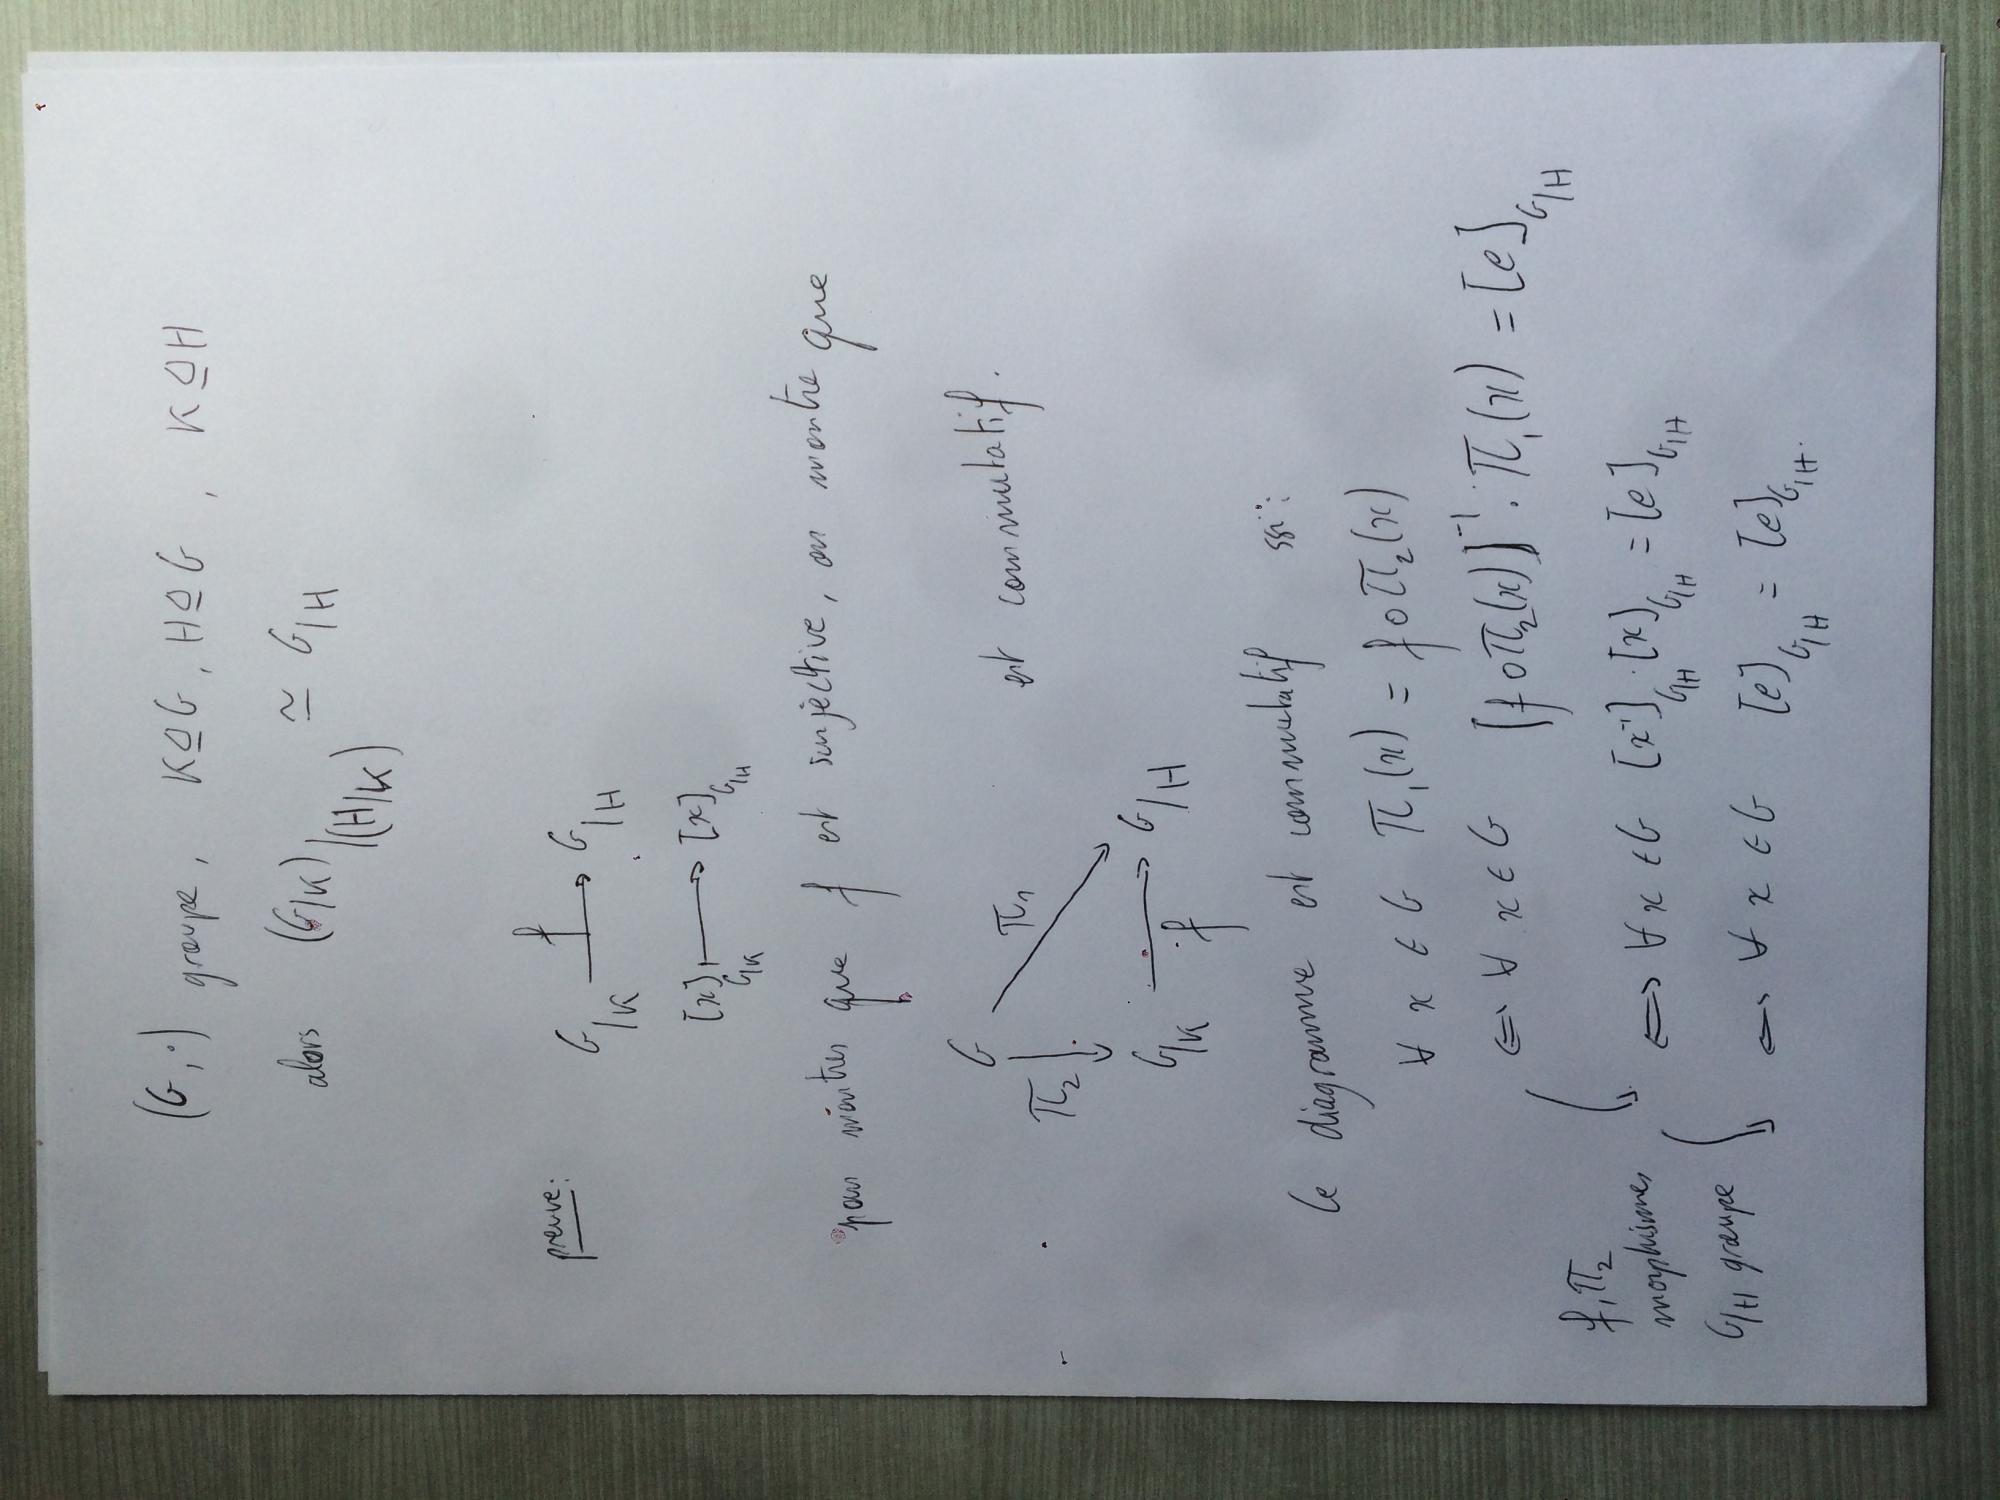 (G, ·) groupe, K ⊴ G, H ⊴ G, K ⊴ H
alors (G/K)/(H/K) ≅ G/H
preuve: G/K →f G/H
[x]_G/K ⟼ [x]_G/H
pour montrer que f est surjective, on montre que
G π₁
π₂ est commutatif.
G/K f G/H
Ce diagramme est commutatif ssi:
∀ x ∈ G π₁(x) = f ∘ π₂(x)
⇔ ∀ x ∈ G [f ∘ π₂(x)]⁻¹ · π₁(x) = [e]_G/H
f, π₂ morphismes ⇔ ∀ x ∈ G [x⁻¹]_G/H · [x]_G/H = [e]_G/H
G/H groupe ⇔ ∀ x ∈ G [e]_G/H = [e]_G/H.